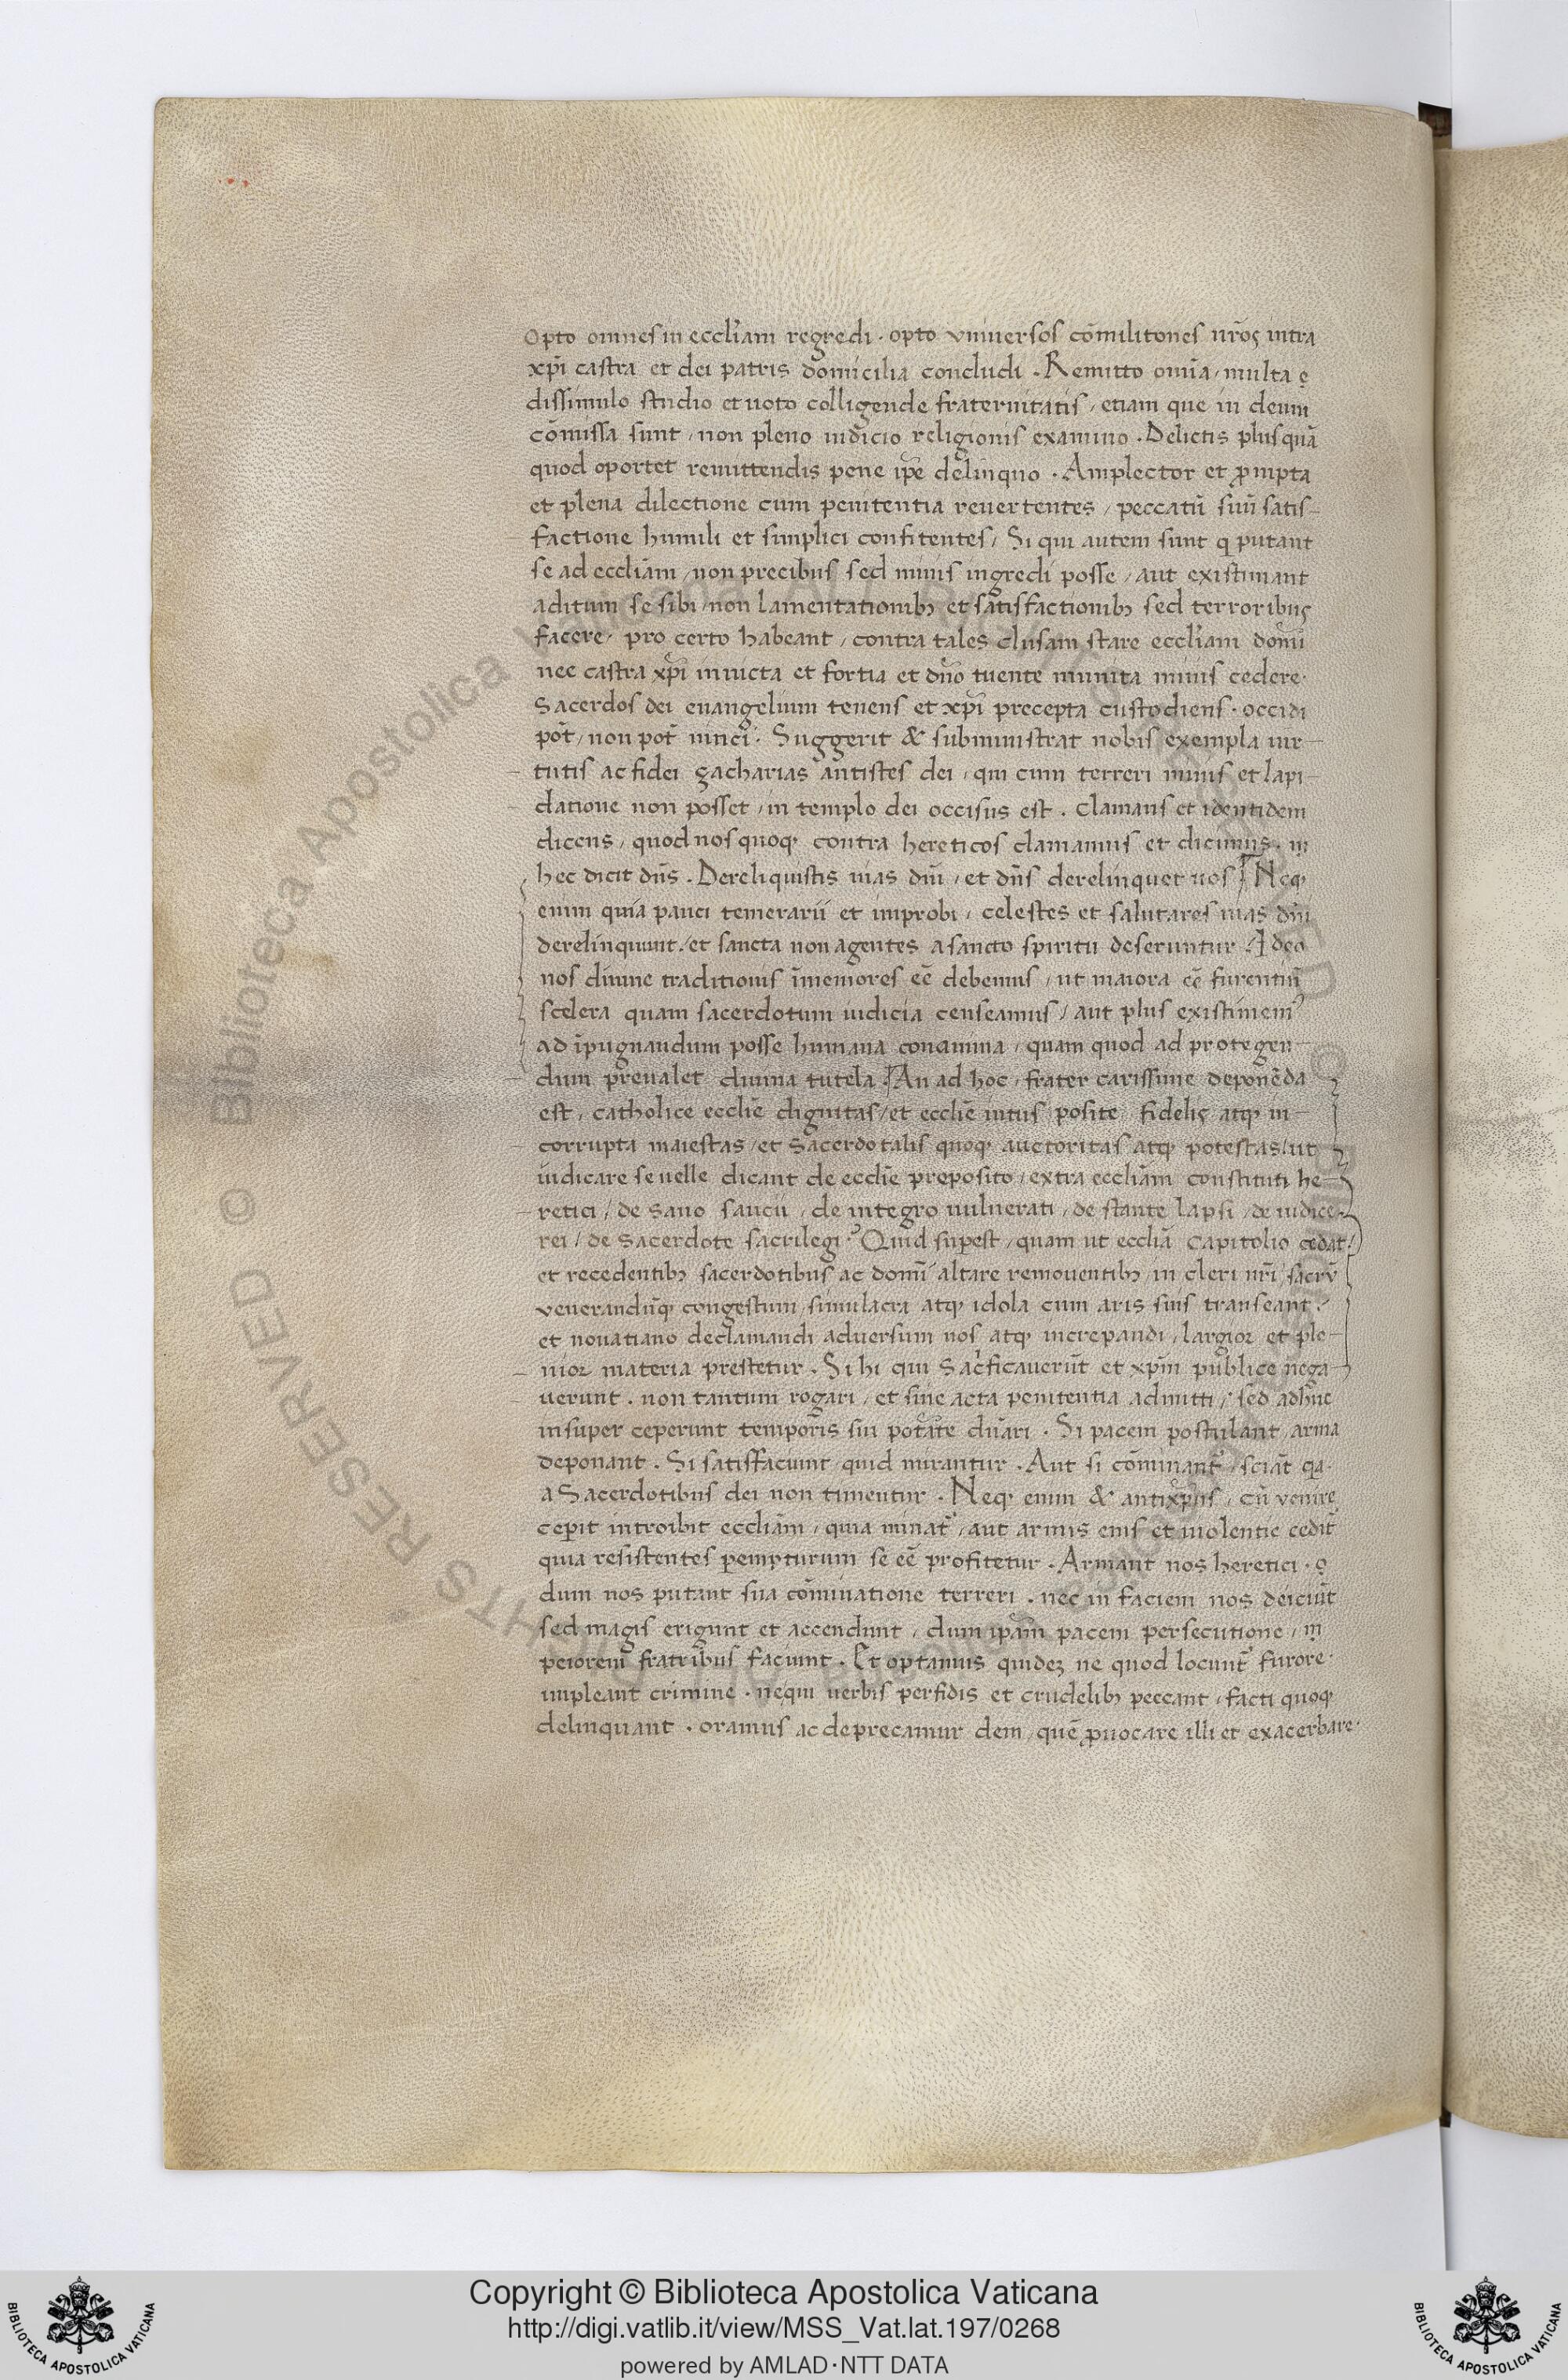 Opto omnes in eccl̃iam regredi . opto vniuersos cõmilitones nr̃os intra
xp̃i castra et dei patris domicilia concludi . Remitto om̃ia / multa
dissimulo studio et uoto colligende fraternitatis / etiam que in deum
cõmissa sunt / non pleno iudicio religionis examino . Delictis plusquã
quod oportet remittendis pene ip̃e delinquo . Amplector et ꝓmpta
et plena dilectione cum penitentia reuertentes / peccatũ suũ satis-
factione humili et simplici confitentes / Si qui autem sunt q putant
se ad eccliãm / non precibus sed minis ingredi posse / aut existimant
aditum se sibi / non lamentationibꝫ et satisfactionibꝫ sed terroribus
facere / pro certo habeant / contra tales clusam stare eccl̃iam dom̃i
nec castra xp̃i inuicta et fortia et dño tuente munita minis cedere .
Sacerdos dei euangelium tenens et xp̃i precepta custodiens . occidi
pot̃ / non pot̃ uinci . Suggerit & subministrat nobis exempla uir-
tutis ac fidei zacharias antistes dei / qui cum terreri minis et lapi-
datione non posset / in templo dei occisus est . clamans et identidem
dicens / quod nos quoqꝫ contra hereticos clamamus et dicimus .
hec dicit dñs . Dereliquistis uias dñi / et dñs derelinquet uos / Neqꝫ
enim quia pauci temerarii et improbi / celestes et salutares uias dñi
derelinquunt / et sancta non agentes a sancto spiritu deseruntur / Ideo
nos diuine traditionis ĩmemores eẽ debemus / ut maiora eẽ furentiũ
scelera quam sacerdotum iudicia censeamus / aut plus existimemꝰ
ad ĩpugnandum posse humana conamina / quam quod ad protegen-
dum preualet diuina tutela / An ad hoc / frater carissime deponẽda
est / catholice ecclie̅ dignitas / et ecclie̅ intus posite / fidelis atqꝫ in-
corrupta maiestas / et Sacerdotalis quoqꝫ auctoritas atqꝫ potestas / ut
iudicare se uelle dicant de ecclie̅ preposito / extra eccliãm constituti he-
retici / de sano saucii / de integro uulnerati / de stante lapsi / de iudice
rei / de Sacerdote sacrilegi ? Quid suꝑest / quam ut eccliã capitolio cedat /
et recedentibꝫ sacerdotibus ac dom̃i altare remouentibꝫ / in cleri nr̃i sacrũ
venerandũqꝫ congestum / simulacra atqꝫ idola cum aris suis transeant /
et nouatiano declamandi aduersum nos atqꝫ increpandi / largior et ple-
nior materia prestetur . Si hi qui sacᵢficauerũt et xp̃m publice nega-
uerunt . non tantum rogari / et sine acta penitentia admitti / sed adhuc
insuper ceperunt temporis sui potãte dñari . Si pacem postulant / arma
deponant . Si satisfaciunt / quid mirantur . Aut si cõminantᷣ / sciãt qa
a Sacerdotibus dei non timentur . Neqꝫ enim & antixp̃us / cũ venire
ceperit introibit eccliãm / quia minatᷣ / aut armis eius et uiolentie cedit̃
quia resistentes ꝑempturum se eẽ profitetur . Armant nos heretici .
dum nos putant sua cõminatione terreri . nec in faciem nos deiciũt
sed magis erigunt et accendunt / dum ip̃am pacem persecutione /
peiorem fratribus faciunt . Et optamus quidez ne quod locuntᷣ furore .
impleant crimine . ne qui uerbis perfidis et crudelibꝫ peccant / facti quoqꝫ
delinquant . oramus ac deprecamur dem / quẽ ꝓuocare illi et exacerbare .
Copyright © Biblioteca Apostolica Vaticana
http://digi.vatlib.it/view/MSS_Vat.lat.197/0268
powered by AMLAD·NTT DATA